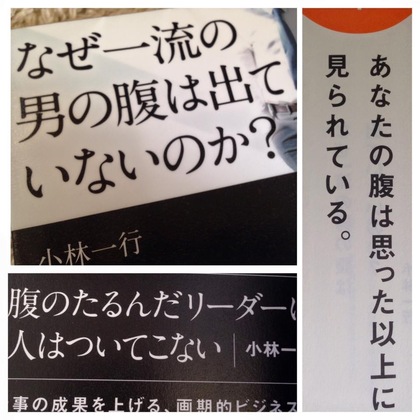 なぜ一流の
男の腹は出て
いないのか?
小林一行
腹のたるんだリーダーに
人はついてこない 小林一
事の成果を上げる、画期的ビジネス
あなたの腹は思った以上に
見られている。